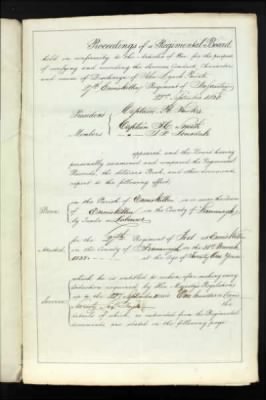 Proceedings of a Regimental Board
held in conformity to the Articles of War for the purpose
of verifying and recording the Services, Conduct, Character
and cause of Discharge of John Lynch Private
27th Enniskilling Regiment of Infantry
27th September
President Captain H.
Members Captain H. Smith
appeared and the Board having
personally examined and compared the Regimental
Records, the Soldiers Book, and other documents
report to the following effect,
Born in the Parish of Enniskillen in or near the town
of Enniskillen in the County of Fermanagh
by Trade a Labourer
Attested for the 27th Regiment of Foot at Enniskillen
in the County of Fermanagh on the 
at the Age of Twenty One Years
Service which he is entitled to reckon after making every
deduction required by Her Majesty's Regulations
up to the 27th September One hundred and
the
details of which, as extracted from the Regimental
documents are stated in the following page